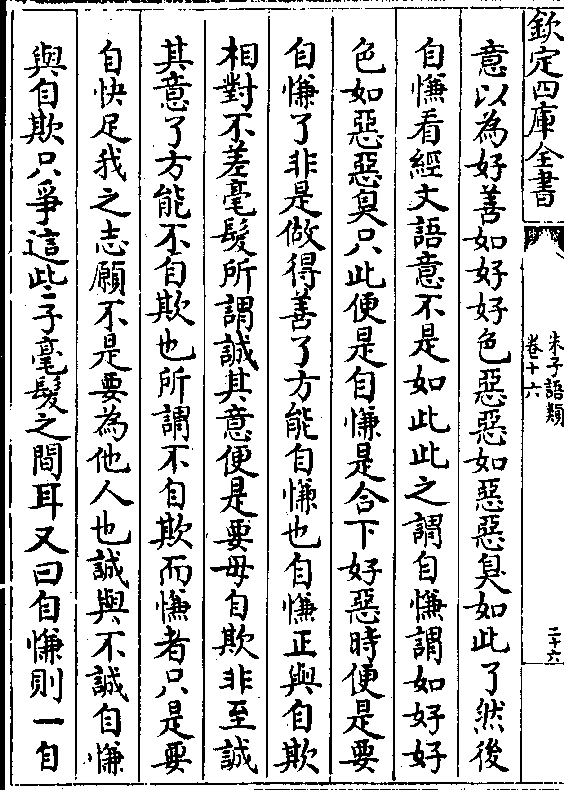 欽定四庫全書
朱子語類
卷十六
二十六
意以為好善如好好色惡惡如惡惡臭如此了然後
自慊看經文語意不是如此此之謂自慊謂如好好
色如惡惡臭只此便是自慊是合下好惡時便是要
自慊了非是做得善了方能自慊也自慊正與自欺
相對不差毫髮所謂誠其意便是要毋自欺非至誠
其意了方能不自欺也所謂不自欺而慊者只是要
自快足我之志願不是要為他人也誠與不誠自慊
與自欺只爭這些子毫髮之間耳又曰自慊則一自